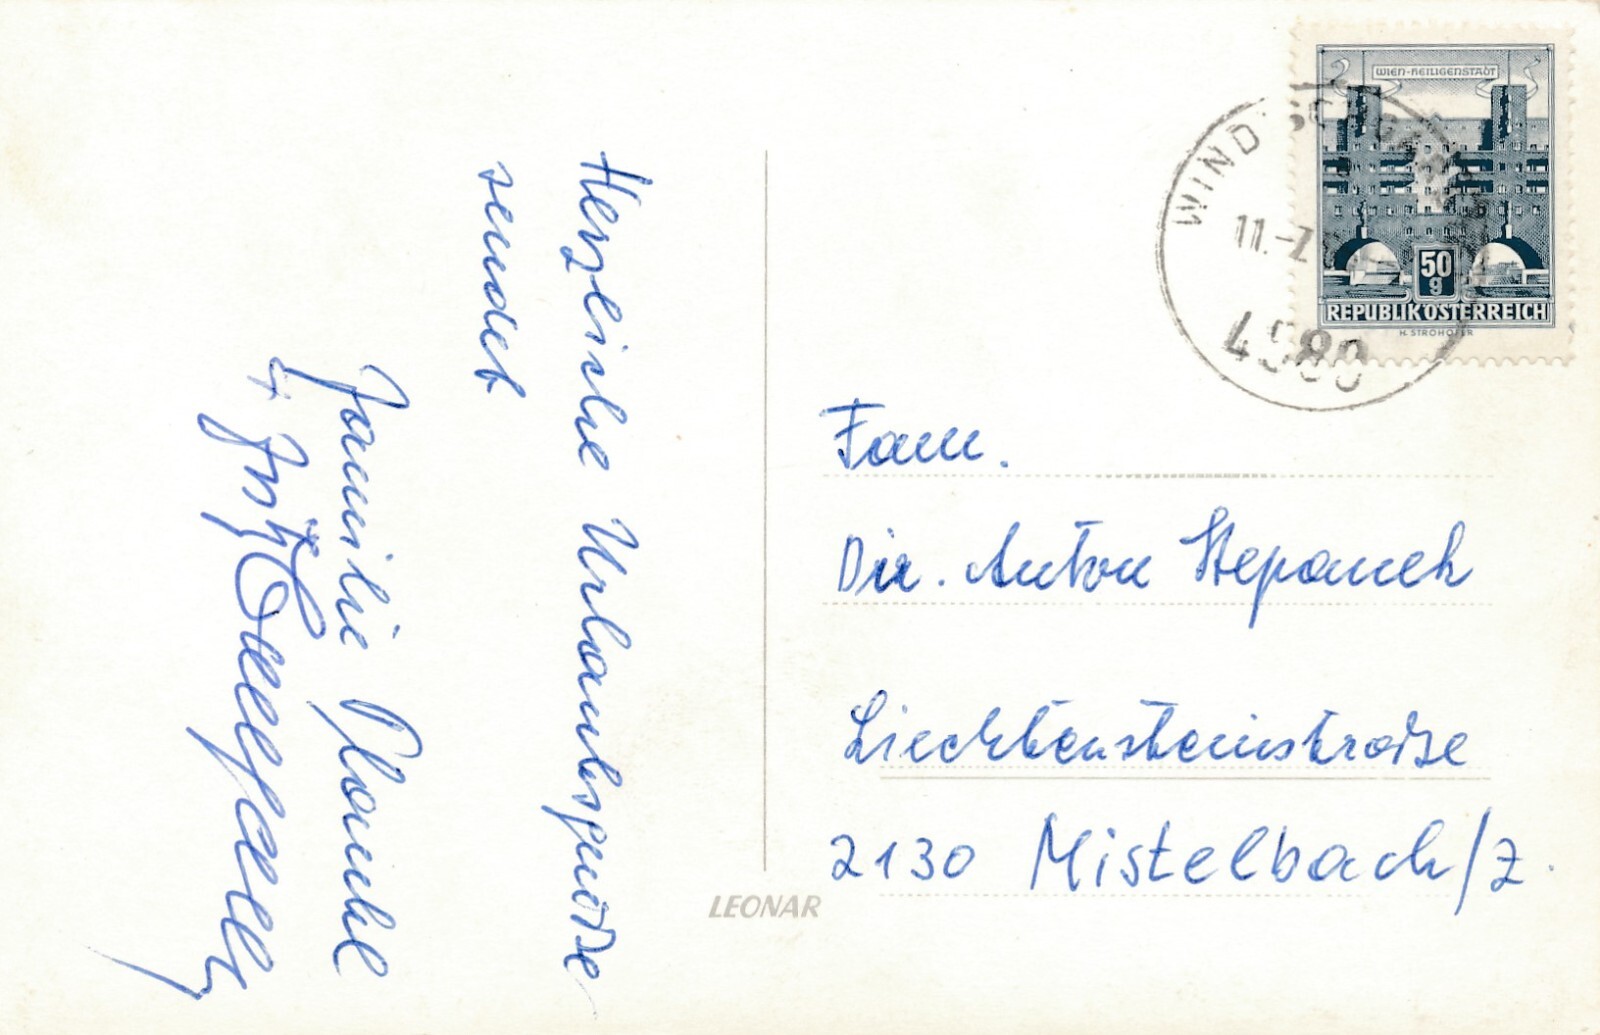 Herzliche Urlaubsgrüße
sendet
Familie
WIEN-HEILIGENSTADT
50
g
REPUBLIK ÖSTERREICH
H. STROHOFER
11.-7.
4580
Fam.
Dir. Anton Stepanek
Liechtensteinstraße
2130 Mistelbach/Z.
LEONAR